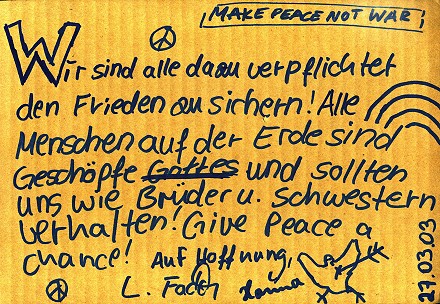 MAKE PEACE NOT WAR!
Wir sind alle dazu verpflichtet
den Frieden zu sichern! Alle
Menschen auf der Erde sind
Geschöpfe Gottes und sollten
uns wie Brüder u. Schwestern
verhalten! Give Peace a
chance! Auf Hoffnung,
L.
27.03.03